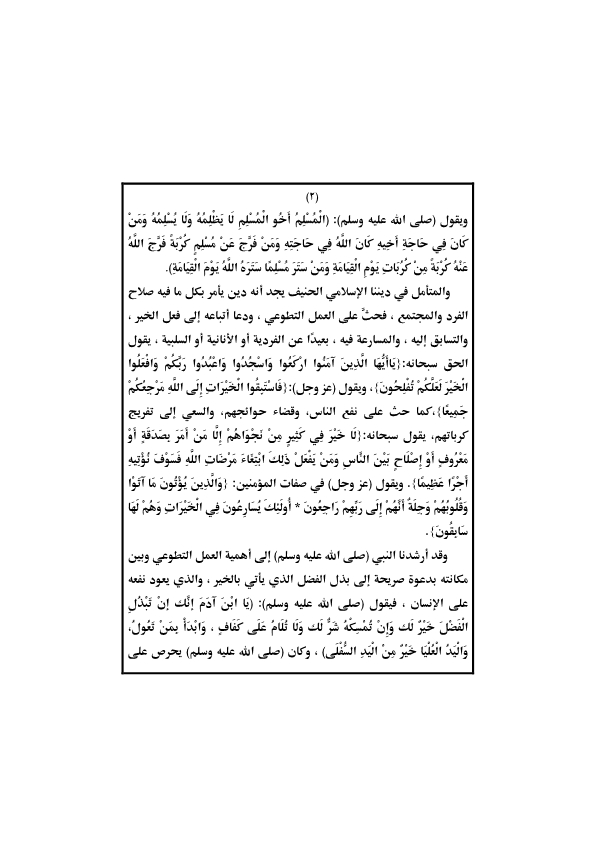 (٢)
ويقول (صلى الله عليه وسلم): (الْمُسْلِمُ أَخُو الْمُسْلِمِ لَا يَظْلِمُهُ وَلَا يُسْلِمُهُ وَمَنْ
كَانَ فِي حَاجَةِ أَخِيهِ كَانَ اللَّهُ فِي حَاجَتِهِ وَمَنْ فَرَّجَ عَنْ مُسْلِمٍ كُرْبَةً فَرَّجَ اللَّهُ
عَنْهُ كُرْبَةً مِنْ كُرُبَاتِ يَوْمِ الْقِيَامَةِ وَمَنْ سَتَرَ مُسْلِمًا سَتَرَهُ اللَّهُ يَوْمَ الْقِيَامَةِ).
والمتأمل في ديننا الإسلامي الحنيف يجد أنه دين يأمر بكل ما فيه صلاح
الفرد والمجتمع ، فحثَّ على العمل التطوعي ، ودعا أتباعه إلى فعل الخير ،
والتسابق إليه ، والمسارعة فيه ، بعيدًا عن الفردية أو الأنانية أو السلبية ، يقول
الحق سبحانه:{يَاأَيُّهَا الَّذِينَ آمَنُوا ارْكَعُوا وَاسْجُدُوا وَاعْبُدُوا رَبَّكُمْ وَافْعَلُوا
الْخَيْرَ لَعَلَّكُمْ تُفْلِحُونَ}، ويقول (عز وجل):{فَاسْتَبِقُوا الْخَيْرَاتِ إِلَى اللَّهِ مَرْجِعُكُمْ
جَمِيعًا}،كما حث على نفع الناس، وقضاء حوائجهم، والسعي إلى تفريج
كرباتهم، يقول سبحانه:{لَا خَيْرَ فِي كَثِيرٍ مِنْ نَجْوَاهُمْ إِلَّا مَنْ أَمَرَ بِصَدَقَةٍ أَوْ
مَعْرُوفٍ أَوْ إِصْلَاحٍ بَيْنَ النَّاسِ وَمَنْ يَفْعَلْ ذَلِكَ ابْتِغَاءَ مَرْضَاتِ اللَّهِ فَسَوْفَ نُؤْتِيهِ
أَجْرًا عَظِيمًا}. ويقول (عز وجل) في صفات المؤمنين: {وَالَّذِينَ يُؤْتُونَ مَا آتَوْا
وَقُلُوبُهُمْ وَجِلَةٌ أَنَّهُمْ إِلَى رَبِّهِمْ رَاجِعُونَ * أُولَئِكَ يُسَارِعُونَ فِي الْخَيْرَاتِ وَهُمْ لَهَا
سَابِقُونَ}.
وقد أرشدنا النبي (صلى الله عليه وسلم) إلى أهمية العمل التطوعي وبين
مكانته بدعوة صريحة إلى بذل الفضل الذي يأتي بالخير ، والذي يعود نفعه
على الإنسان ، فيقول (صلى الله عليه وسلم): (يَا ابْنَ آدَمَ إِنَّكَ إِنْ تَبْذُلِ
الْفَضْلَ خَيْرٌ لَكَ وَإِنْ تُمْسِكْهُ شَرٌّ لَكَ وَلَا تُلَامُ عَلَى كَفَافٍ ، وَابْدَأْ بِمَنْ تَعُولُ،
وَالْيَدُ الْعُلْيَا خَيْرٌ مِنْ الْيَدِ السُّفْلَى) ، وكان (صلى الله عليه وسلم) يحرص على